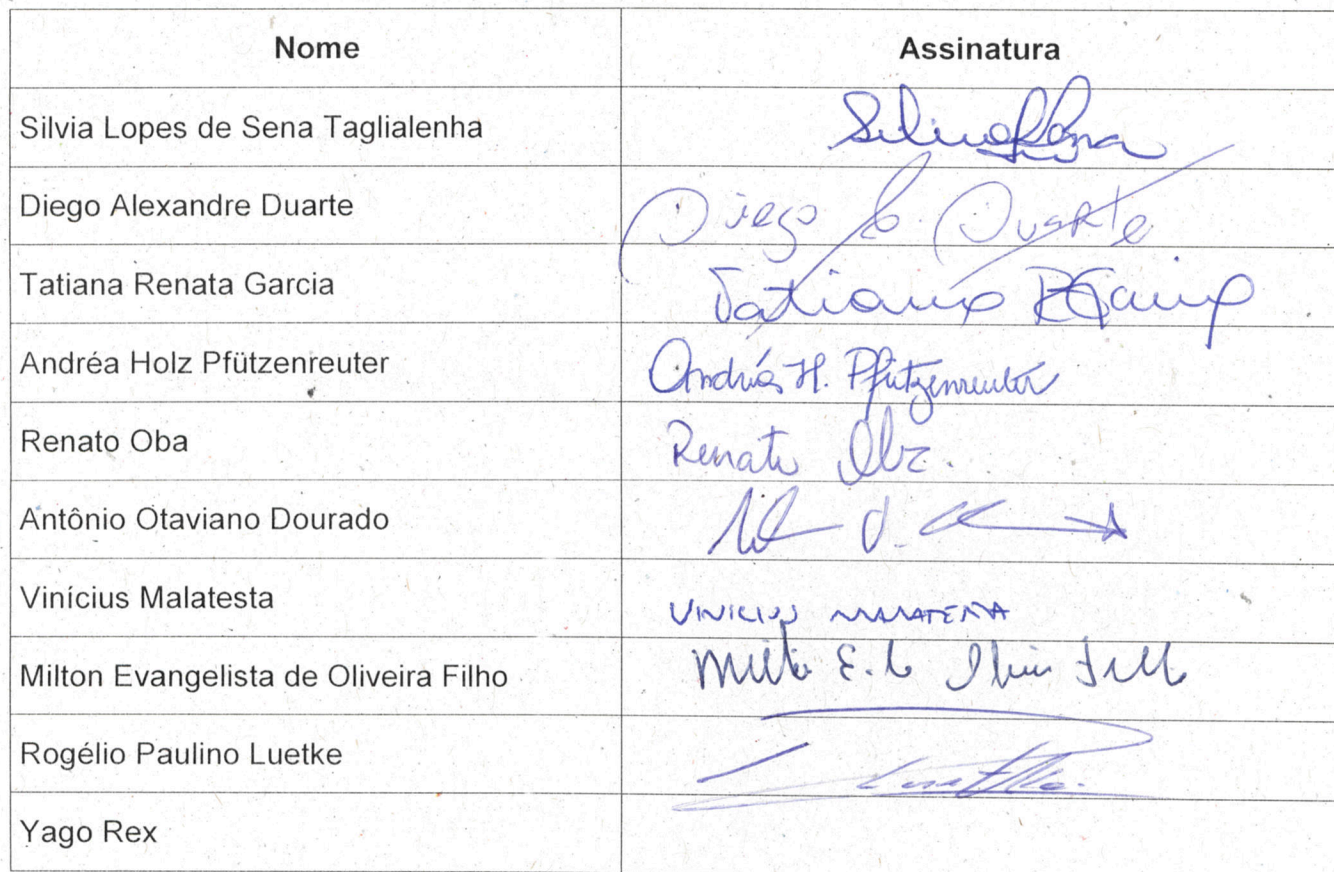 Nome Assinatura
Silvia Lopes de Sena Taglialenha Silvia Sena
Diego Alexandre Duarte Diego A Duarte
Tatiana Renata Garcia Tatiana R Garcia
Andréa Holz Pfützenreuter Andréa H. Pfützenreuter
Renato Oba Renato Oba.
Antônio Otaviano Dourado
Vinícius Malatesta VINICIUS MALATESTA
Milton Evangelista de Oliveira Filho Milton E. de Oliveira Filho
Rogélio Paulino Luetke Luetke
Yago Rex